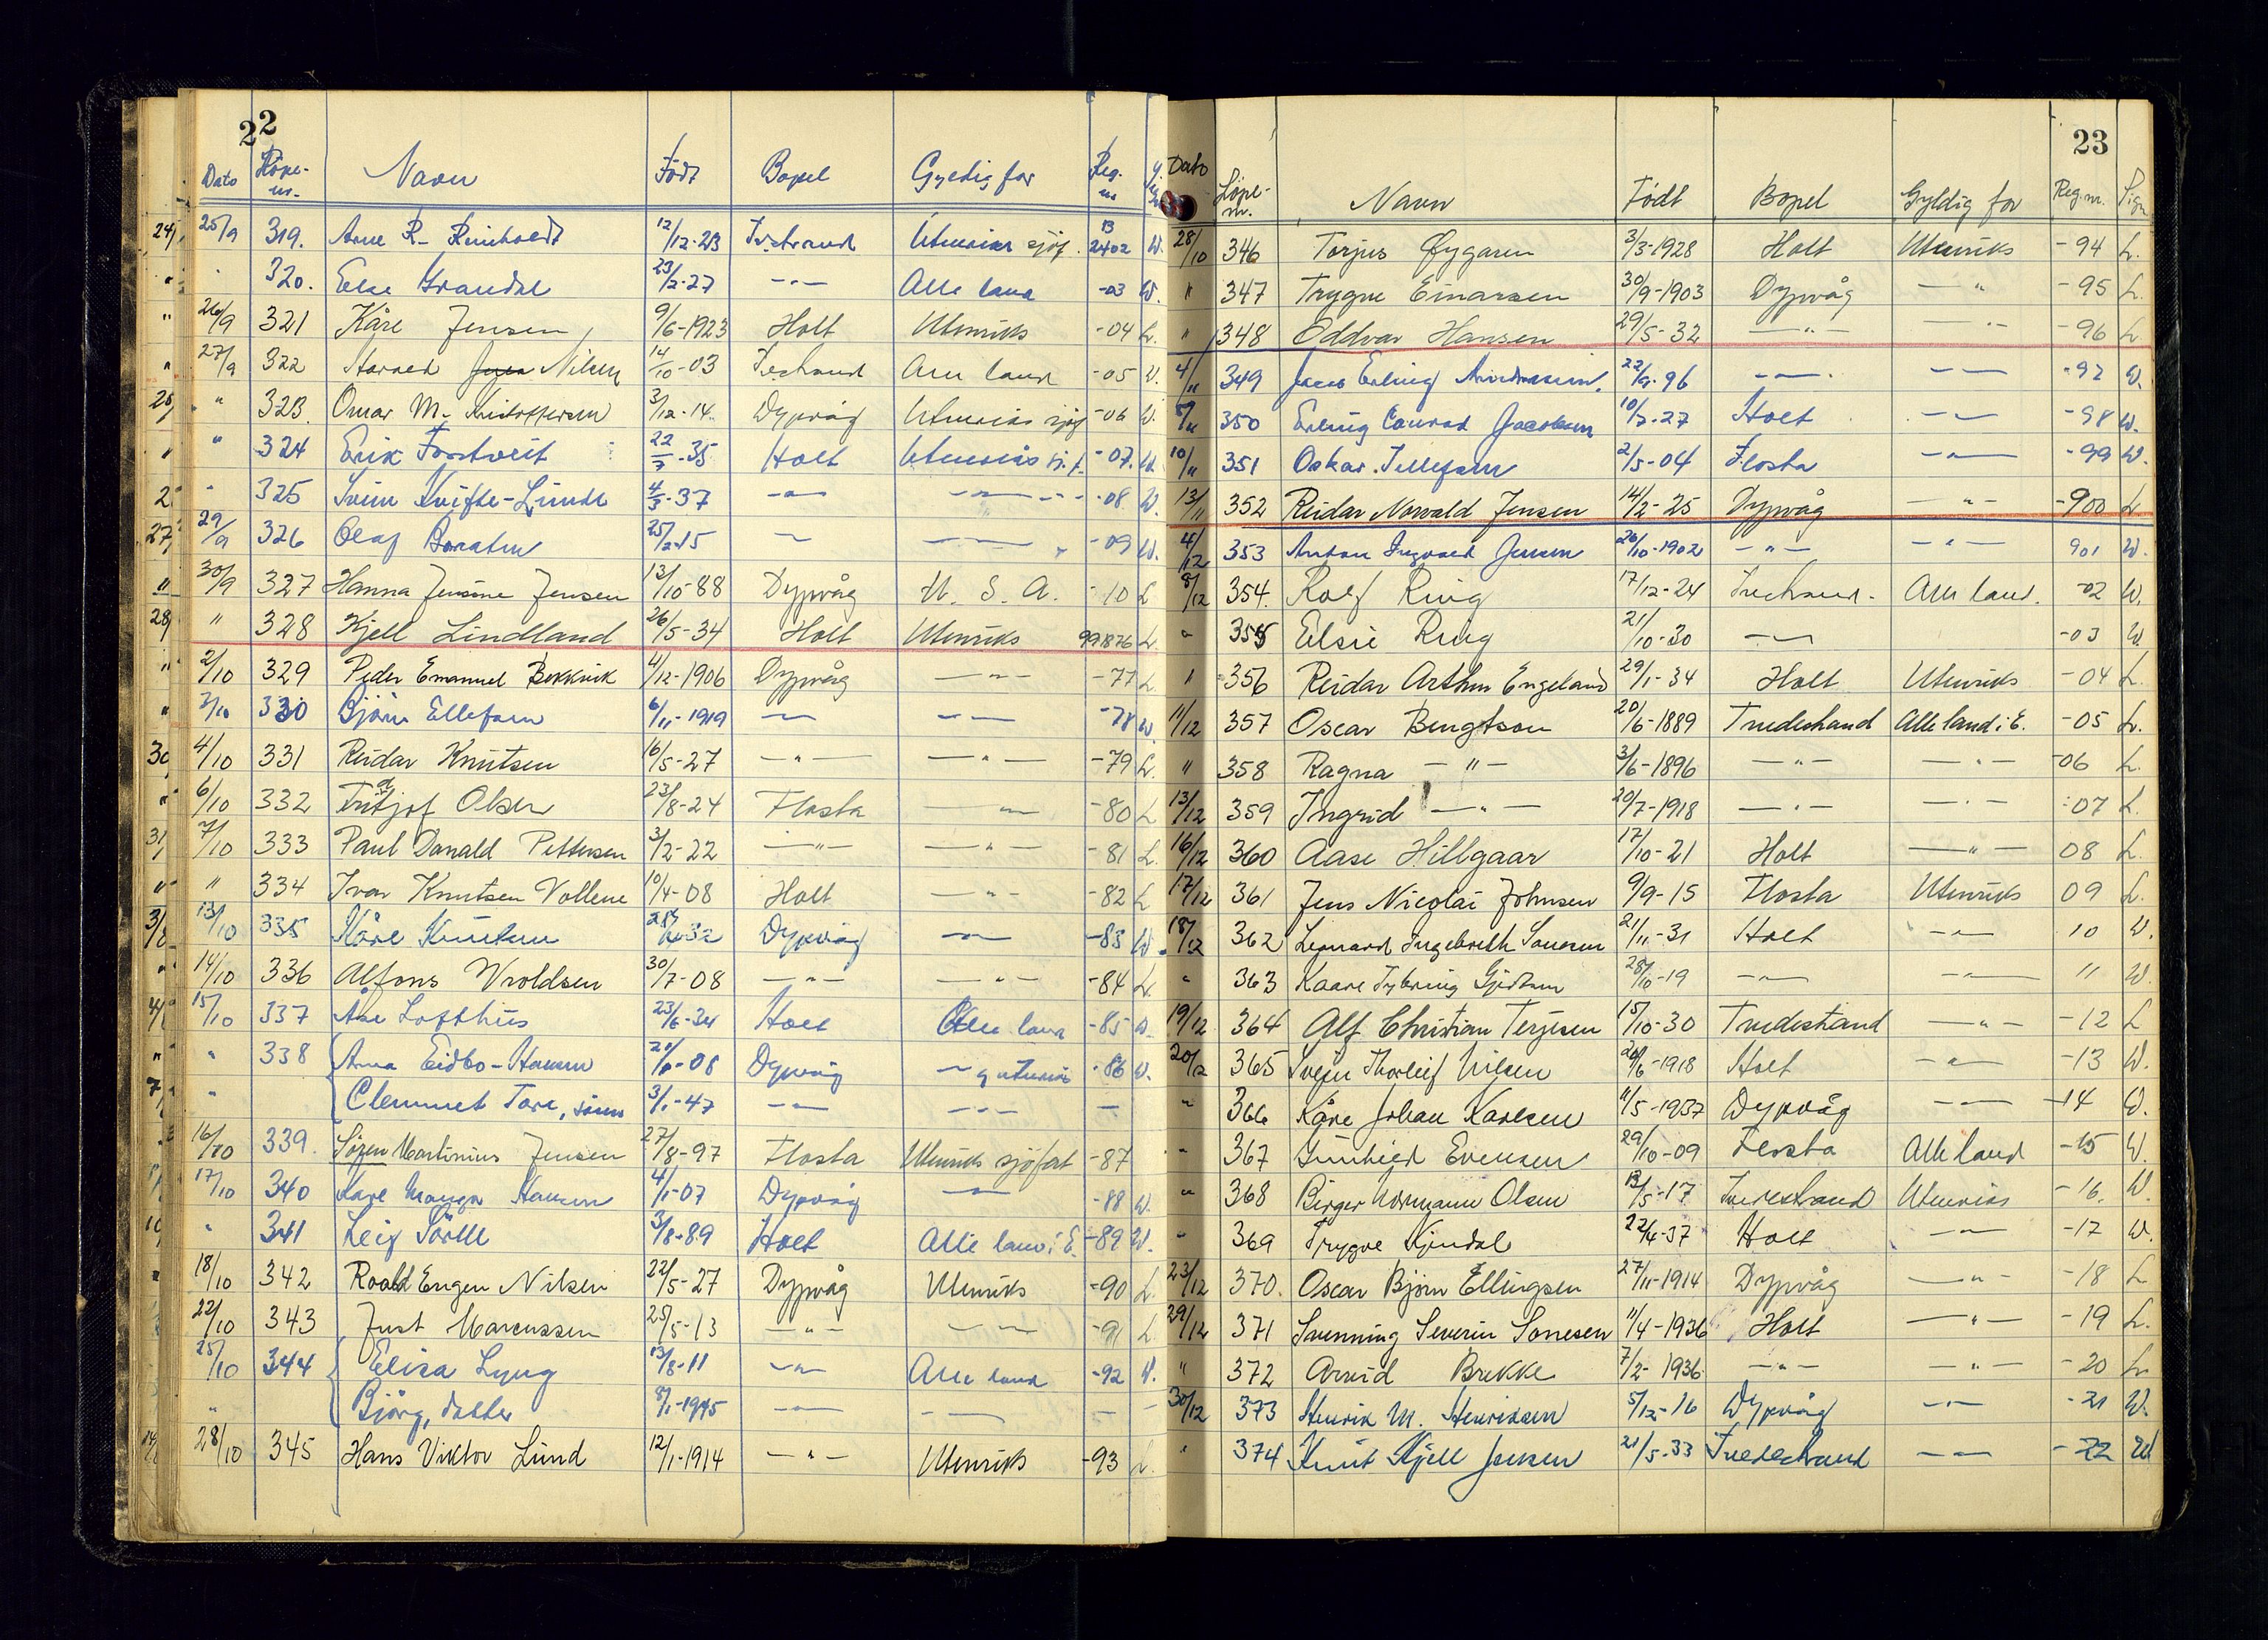 22
Dato Löpe-nr. Navn Födt Bopel Gyldig for Reg. nr Sign
25/9 319. Arne R. Reinholdt 12/12-23 Tvedestrand Utenriks sjöf. B 2402 W.
" 320. Else Grandal 23/2-27 -"- Alle land -03 W.
26/9 321 Kåre Jensen 9/6-1923 Holt Utenriks -04 L.
27/9 322 Harald Nilsen 14/10-03 Tvestrand Alle land -05 W.
" 323. Omar M. Kristoffersen 3/12-14. Dypvåg Utenriks sjöf -06 W.
" 324 Erik Tostveit 22/7-35 Holt Utenriks -07. W.
" 325 Svein Kvifte-Linde 4/3-37 -"- -"- -08 W.
29/9 326 Olaf 25/2-15 -"- -"- -09 W.
30/9 327 Hanna Jensine Jensen 13/10-88 Dypvåg U. S. A. -10 L
" 328 Kjell Lindland 26/5-34 Holt Utenriks 991876 L.
2/10 329 Peder Emanuel Bekkvik 4/12-1906 Dypvåg -"- -77 L
3/10 330 Björn Ellefsen 6/11-1919 -"- -"- -78 W.
4/10 331 Reidar Knutsen 16/5-27 -"- -"- -79 L.
6/10 332 Fridtjof Olsen 23/8-24 Flosta -"- -80 L
7/10 333 Paul Donald Pettersen 3/2-22 -"- -"- -81 L.
" 334 Ivar Knutsen Vollene 10/4-08 Holt -"- -82 L
13/10 335 Kåre Knutsen Dypvåg -"- -83 W.
14/10 336 Alfons Vroldsen 30/7-08 -"- -"- -84 L.
15/10 337 Åse Lofthus 23/6-34 Holt Alle land -85 W.
" 338 Anna Eidbo-Hansen Dypvåg -"- g utenriks -86 W.
" Clemmet Tore, sönn 3/1-47 -"- -"- -
16/10 339. Sören Martinius Jensen 27/8-97 Flosta Utenriks sjöfart -87
17/10 340 Kåre Hansen 4/1-07 Dypvåg -"- -88 W.
" 341 Leif Sörlle 3/8-89 Holt Alle land i E. -89 W.
18/10 342 Roald Eugen Nilsen 22/5-27 Dypvåg Utenriks -90 L.
22/10 343 Just Marcussen 25/5-13 -"- -"- -91 L
25/10 344 Elisa Lyng 13/8-11 -"- Alle land -92 W.
" Björg, datter 8/1-1945 -"- -"- -
28/10 345 Hans Viktor Lund 12/1-1914 -"- Utenriks -93 L.
23
Dato Löpe-nr. Navn Födt Bopel Gyldig for Reg.nr. Sign
28/10 346 Torjus Øygaren 3/3-1928 Holt Utenriks -94 L.
" 347 Trygve Einarsen 30/9-1903 Dypvåg -"- -95 L.
" 348 Oddvar Hansen 29/5-32 -"- -"- -96 L.
4/11 349 Jacob Erling 22/9-96 -"- -"- -97 W.
8/11 350 Erling Conrad Jacobsen 10/7-27 Holt -"- -98 W.
10/11 351 Oskar Tellefsen 2/5-04 Flosta -"- -99 W.
13/11 352 Reidar Norvald Jensen 14/2-25 Dypvåg -"- -900 L
4/12 353 Anton Ingvald Jensen 26/10-1902 -"- -"- 901 W.
8/12 354. Rolf Ring 17/12-24 Tvedestrand. Alle land. -02 W.
" 355 Elsie Ring 21/10-30 -"- -03 W
" 356 Reidar Arthur Engeland 29/1-34 Holt Utenriks -04 L.
11/12 357 Oscar Bengtson 20/6-1889 Tvedestrand Alle land i E. -05 L.
" 358 Ragna -"- 3/6-1896 -"- -"- -06 L.
13/12 359 Ingrid -"- 20/7-1918 -"- -"- -07 L.
16/12 360 Aase Hillgaar 17/10-21 Holt -"- 08 L.
17/12 361 Jens Nicolai Johnsen 9/9-15 Flosta Utenriks 09 L.
18/12 362 Leonard Ingebreth Sonesen 21/11-31 Holt -"- 10 W.
" 363 Kaare Tybring Gjertsen 28/10-19 -"- -"- 11 W
19/12 364 Alf Christian Terjesen 15/10-30 Tvedestrand -"- -12 L
20/12 365 Svein Thorleif Nilsen 20/6-1918 Holt -"- -13 W.
" 366 Kåre Johan Karlsen 11/5-1937 Dypvåg -"- -14 W.
" 367 Gunhild Evensen 29/10-09 Flosta Alle land -15 W.
" 368 Birger Normann Olsen 13/5-17 Tvedestrand Utenriks -16. W.
" 369 Trygve Kjendal 22/4-37 Holt -"- -17 W.
23/12 370. Oscar Bjørn Ellingsen 27/11-1914 Dypvåg -"- -18 L
29/12 371 Svenning Severin Sonesen 11/4-1936 Holt -"- -19 L.
" 372 Arvid Brekke 7/2-1936 -"- -"- -20 L.
30/12 373 Henrik M. Henriksen 5/12-16 Dypvåg -"- -21 W.
" 374 Knut Kjell Jensen 21/5-33 Tvedestrand -"- -22 W